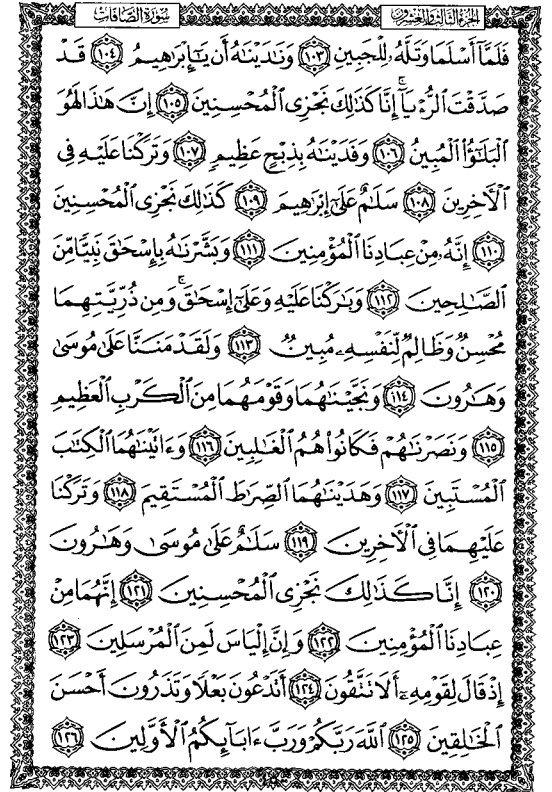 سورة الصافات
الجزء الثالث والعشرون
فَلَمَّآ أَسْلَمَا وَتَلَّهُۥ لِلْجَبِينِ ١٠٣ وَنَٰدَيْنَٰهُ أَن يَٰٓإِبْرَٰهِيمُ ١٠٤ قَدْ
صَدَّقْتَ ٱلرُّءْيَآ ۚ إِنَّا كَذَٰلِكَ نَجْزِى ٱلْمُحْسِنِينَ ١٠٥ إِنَّ هَٰذَا لَهُوَ
ٱلْبَلَٰٓؤُا۟ ٱلْمُبِينُ ١٠٦ وَفَدَيْنَٰهُ بِذِبْحٍ عَظِيمٍ ١٠٧ وَتَرَكْنَا عَلَيْهِ فِى
ٱلْءَاخِرِينَ ١٠٨ سَلَٰمٌ عَلَىٰٓ إِبْرَٰهِيمَ ١٠٩ كَذَٰلِكَ نَجْزِى ٱلْمُحْسِنِينَ
١١٠ إِنَّهُۥ مِنْ عِبَادِنَا ٱلْمُؤْمِنِينَ ١١١ وَبَشَّرْنَٰهُ بِإِسْحَٰقَ نَبِيًّا مِّنَ
ٱلصَّٰلِحِينَ ١١٢ وَبَٰرَكْنَا عَلَيْهِ وَعَلَىٰٓ إِسْحَٰقَ ۚ وَمِن ذُرِّيَّتِهِمَا
مُحْسِنٌ وَظَالِمٌ لِّنَفْسِهِۦ مُبِينٌ ١١٣ وَلَقَدْ مَنَنَّا عَلَىٰ مُوسَىٰ
وَهَٰرُونَ ١١٤ وَنَجَّيْنَٰهُمَا وَقَوْمَهُمَا مِنَ ٱلْكَرْبِ ٱلْعَظِيمِ
١١٥ وَنَصَرْنَٰهُمْ فَكَانُوا۟ هُمُ ٱلْغَٰلِبِينَ ١١٦ وَءَاتَيْنَٰهُمَا ٱلْكِتَٰبَ
ٱلْمُسْتَبِينَ ١١٧ وَهَدَيْنَٰهُمَا ٱلصِّرَٰطَ ٱلْمُسْتَقِيمَ ١١٨ وَتَرَكْنَا
عَلَيْهِمَا فِى ٱلْءَاخِرِينَ ١١٩ سَلَٰمٌ عَلَىٰ مُوسَىٰ وَهَٰرُونَ
١٢٠ إِنَّا كَذَٰلِكَ نَجْزِى ٱلْمُحْسِنِينَ ١٢١ إِنَّهُمَا مِنْ
عِبَادِنَا ٱلْمُؤْمِنِينَ ١٢٢ وَإِنَّ إِلْيَاسَ لَمِنَ ٱلْمُرْسَلِينَ ١٢٣
إِذْ قَالَ لِقَوْمِهِۦٓ أَلَا تَتَّقُونَ ١٢٤ أَتَدْعُونَ بَعْلًا وَتَذَرُونَ أَحْسَنَ
ٱلْخَٰلِقِينَ ١٢٥ ٱللَّهَ رَبَّكُمْ وَرَبَّ ءَابَآئِكُمُ ٱلْأَوَّلِينَ ١٢٦